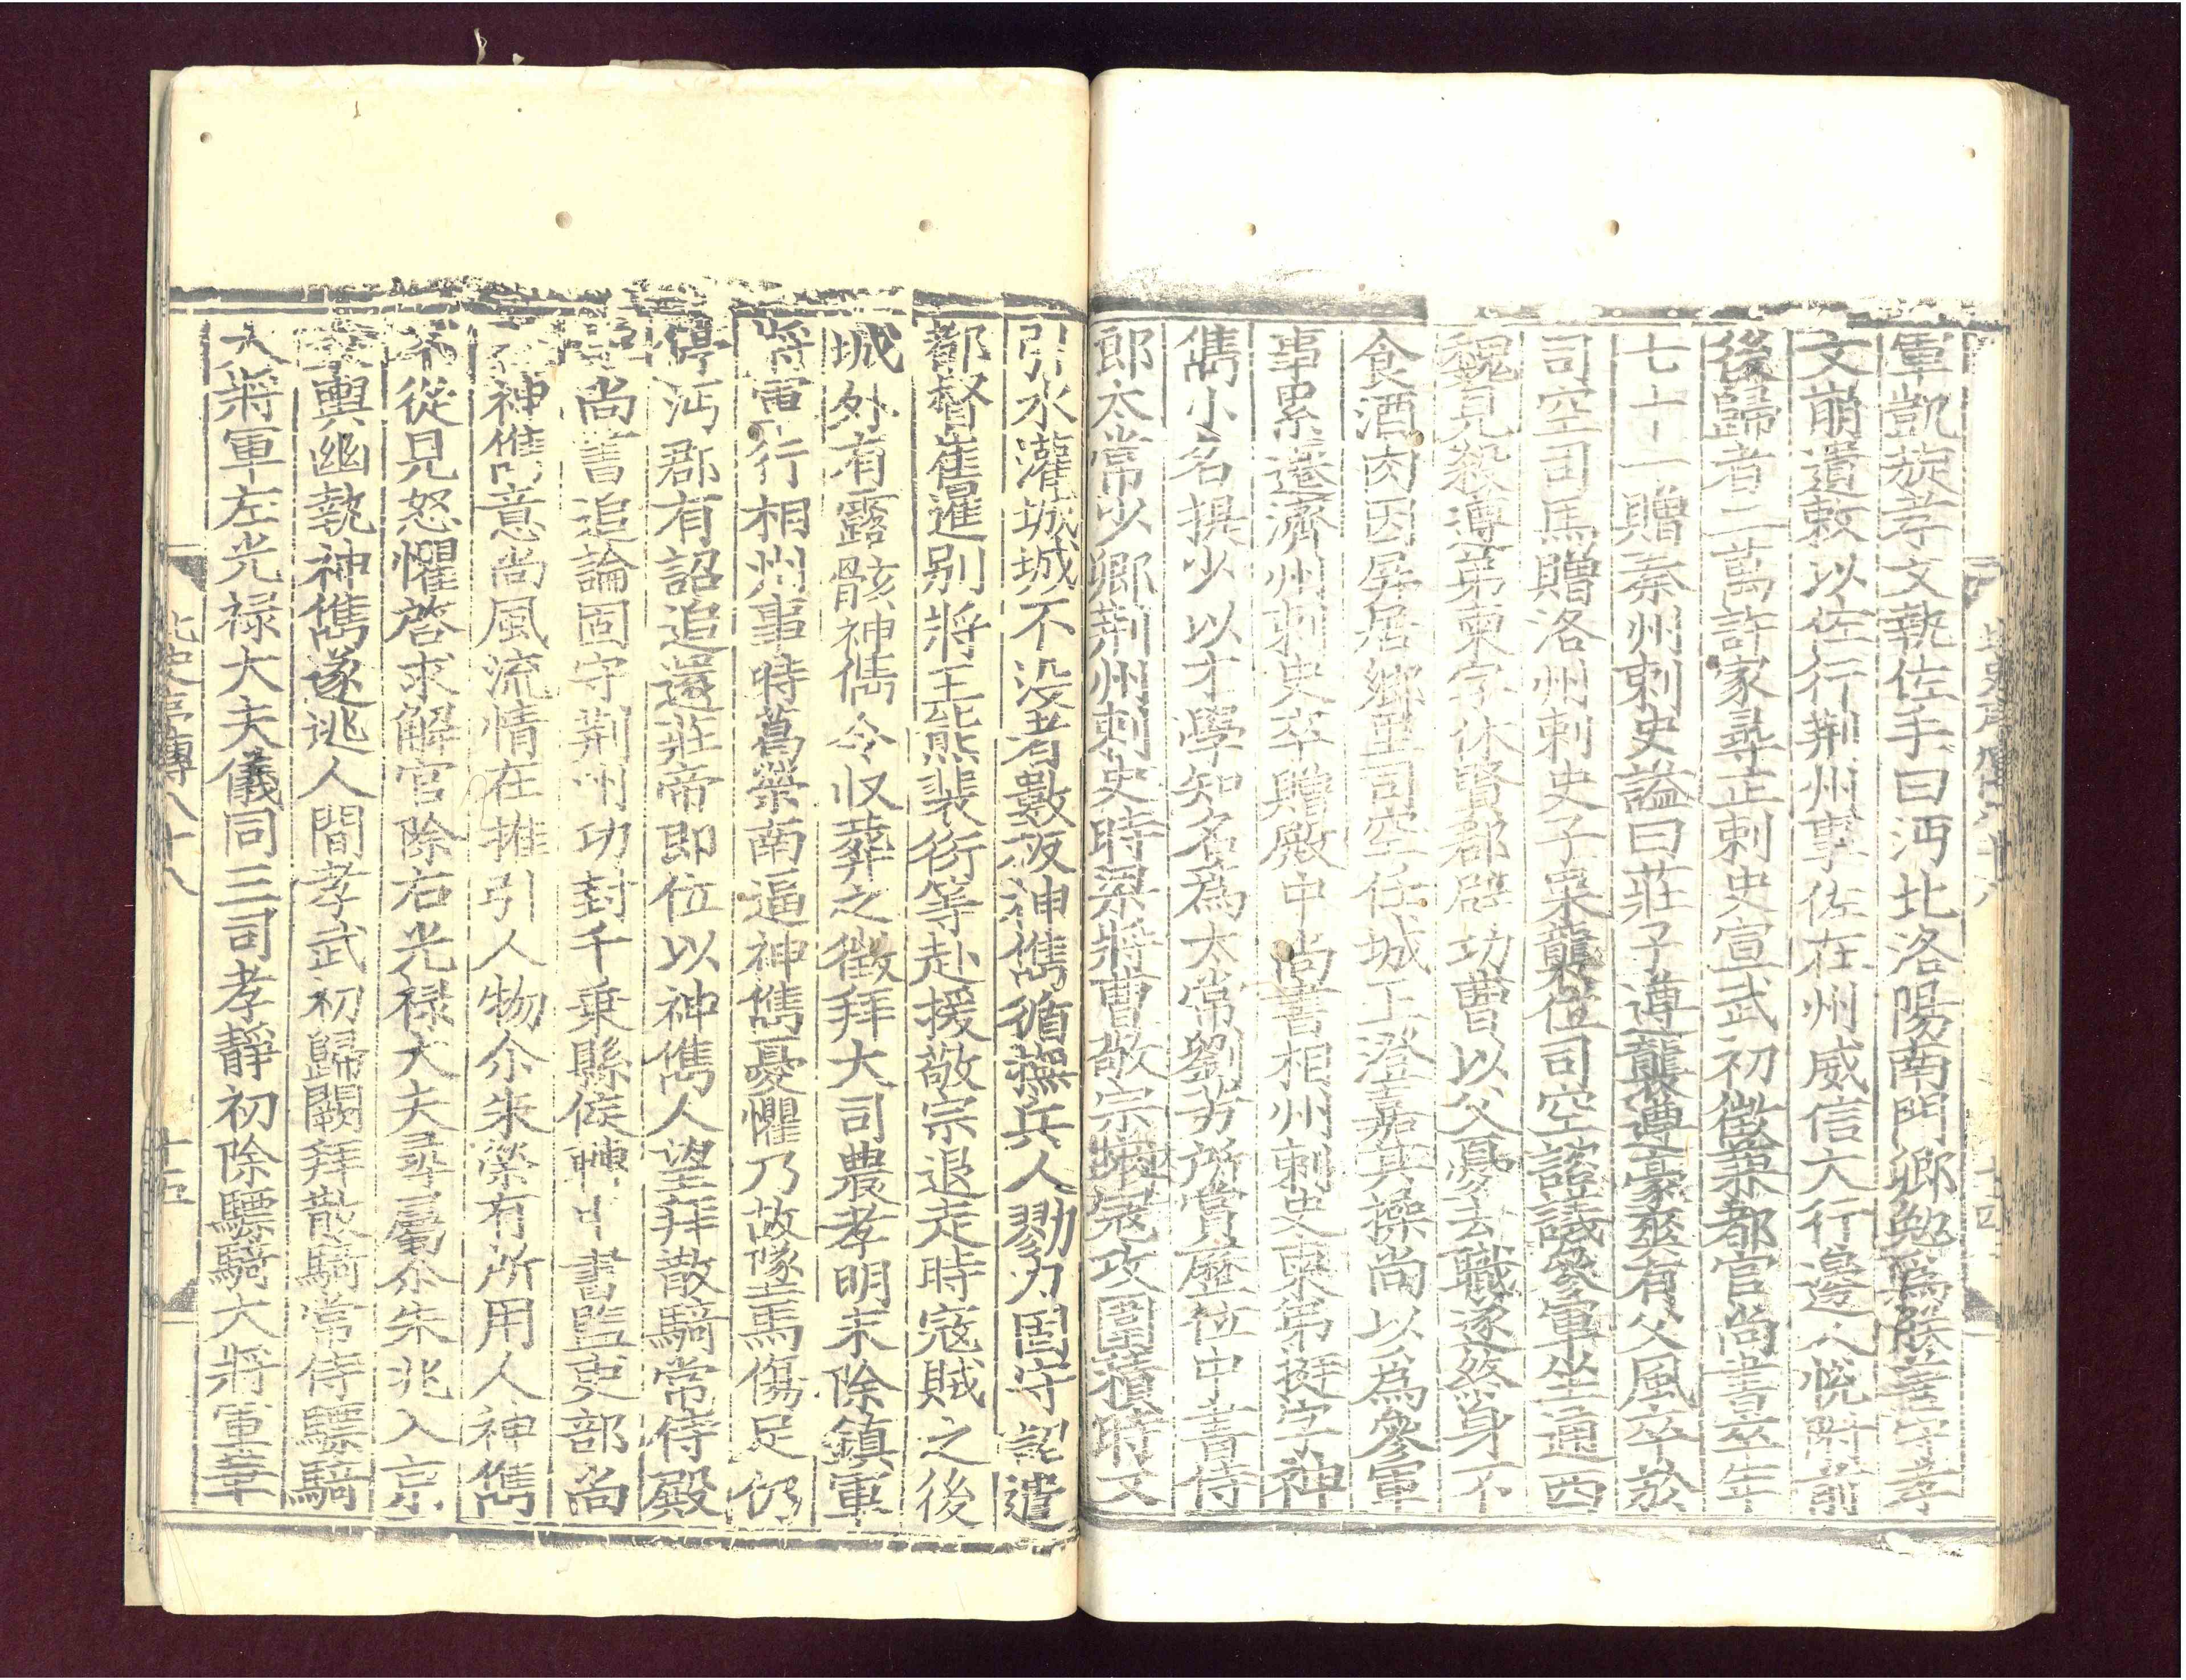 軍凱旋孝文執佐手曰沔北洛陽南門卿勉爲朕善守孝
文崩遺敕以佐行荆州事佐在州威信大行邊人悅附前
後歸者二萬許家尋正刺史宣武初徵兼都官尚書卒年
七十一贈秦州刺史謚曰莊子遵襲遵豪爽有父風卒於
司空司馬贈洛州刺史子果襲位司空諮議參軍坐通西
魏見殺遵弟柬字休賢郡辟功曹以父憂去職遂終身不
食酒肉因屏居鄉里司空任城王澄嘉其操尚以為參軍
事累遷濟州刺史卒贈殿中尚書相州刺史柬弟挺字神
儁小名提少以才學知名為太常劉芳所賞歷位中書侍
郎太常少卿荆州刺史時梁將曹敬宗來寇攻圍積時又
引水灌城城不没者數版神儁循撫兵人勠力固守詔遣
都督崔暹别將王熊裴衍等赴援敬宗退走時寇賊之後
城外有露骸神儁令收葬之徵拜大司農孝明末除鎮軍
將軍行相州事時葛榮南逼神儁憂懼乃故墜馬傷足仍
停沔郡有詔追還莊帝即位以神儁人望拜散騎常侍殿
中尚書追論固守荆州功封千乗縣侯轉中書監吏部尚
書神儁意尚風流情在推引人物尒朱榮有所用人神儁
不從見怒懼啓求解官除右光禄大夫尋屬尒朱兆入京
乗輿幽執神儁遂逃人間孝武初歸闕拜散騎常侍驃騎
大將軍左光禄大夫儀同三司孝靜初除驃騎大將軍華
北史列傳八十八
十五